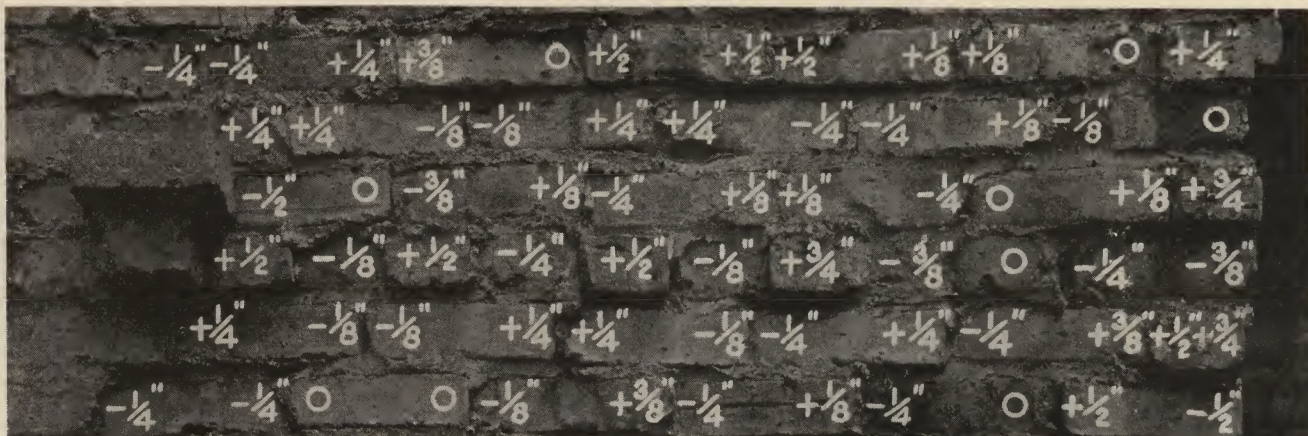 -1/4" -1/4" +1/4" +3/8" O +1/2" +1/2" +1/2" +1/8" +1/8" O +1/4"
+1/4" +1/4" -1/8" -1/8" +1/4" +1/4" -1/4" -1/4" +1/8" -1/8" O
-1/2" O -3/8" +1/8" -1/4" +1/8" +1/8" -1/4" O +1/8" +3/4"
+1/2" -1/8" +1/2" -1/4" +1/2" -1/8" +3/4" -3/8" O -1/4" -3/8"
+1/4" -1/8" -1/8" +1/4" +1/4" -1/8" -1/4" +1/4" -1/4" +3/8" +1/2" +3/4"
-1/4" -1/4" O O -1/8" +3/8" -1/4" +1/8" -1/4" O +1/2" -1/2"